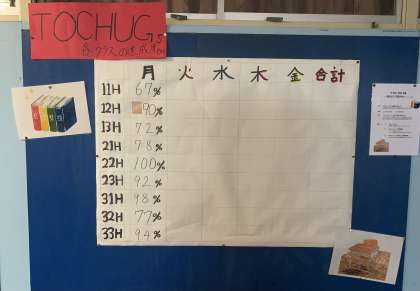 TOCHUGS
各クラスの達成率
月 火 水 木 金 合計
11H 67%
12H 90%
13H 72%
21H 78%
22H 100%
23H 92%
31H 98%
32H 77%
33H 94%